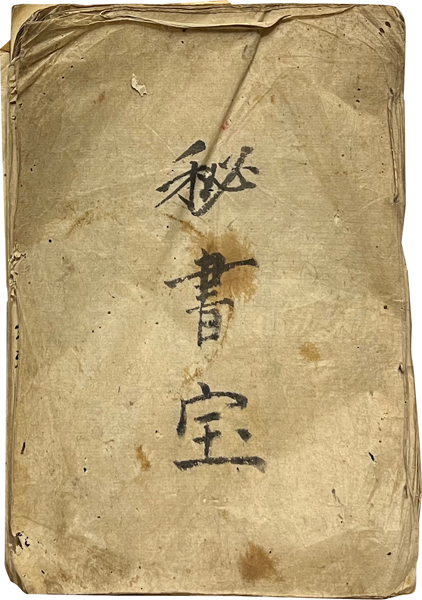 秘書宝